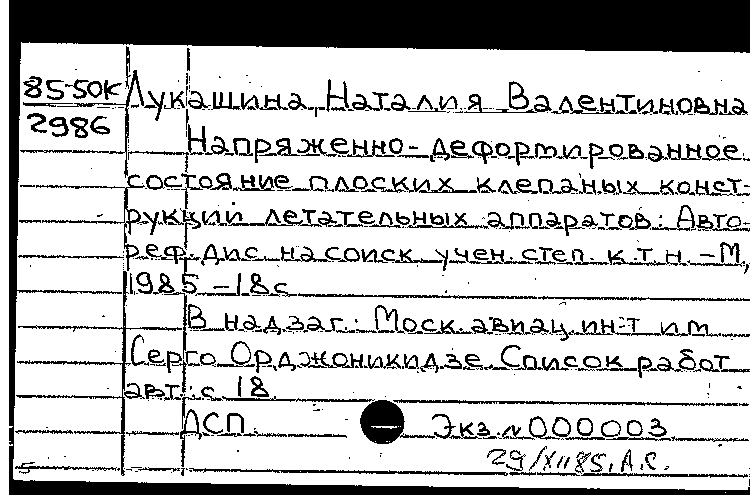 85-50К
2986
Лукашина, Наталия Валентиновна
Напряженно-деформированное
состояние плоских клепаных конст-
рукций летательных аппаратов: Авто-
реф. дис. на соиск. учен. степ. к.т.н. – М.,
1985 – 18 с
В надзаг.: Моск. авиац. ин-т им
Серго Орджоникидзе. Список работ
авт.: с. 18.
ДСП. Экз. № 000003
29/XII 85, А.С.
5